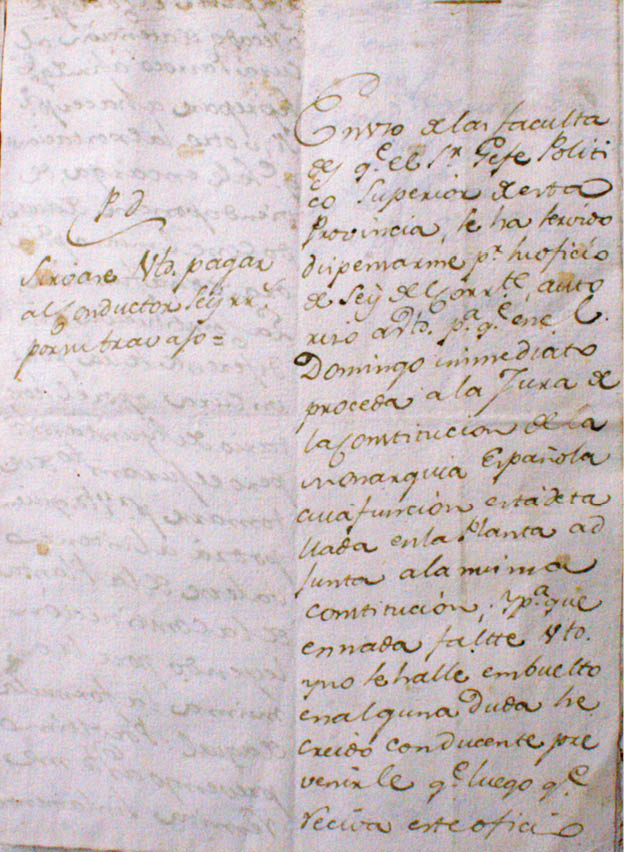 P.d.
Sirvase Vto. pagar
al Conductor Seis rr.s
por su travajo=
En uso de las faculta
des q.e el S.r Gefe Politi
co Superior de esta
Provincia, se ha servido
dispensarme p.r su oficio
de 6 de Corr.te, auto
riso a Vto. p.a q.e en el
Domingo inmediato
proceda a la Jura de
la Constitucion de la
Monarquia Española
cuia función está deta
llada en la Planta ad
junta a la misma
constitución; y p.a que
en nada faltte Vto.
y no se halle embuelto
en alguna Duda he
creido conducente pre
venirle q.e luego q.e
reciva este oficio